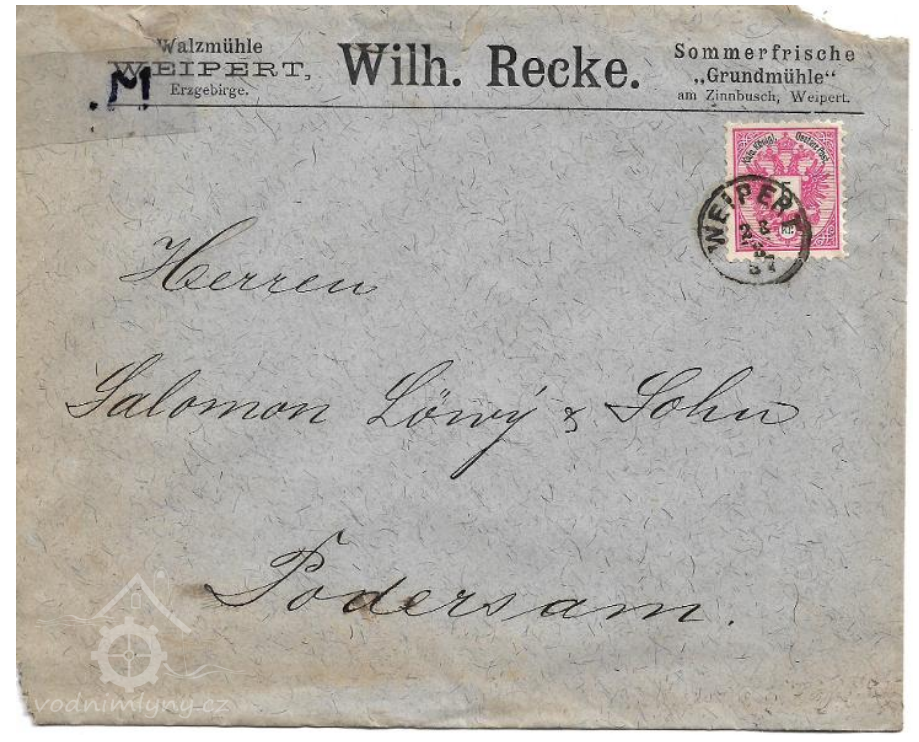 Walzmühle
WEIPERT,
Erzgebirge.
.M
Wilh. Recke.
Sommerfrische
„Grundmühle“
am Zinnbusch, Weipert.
Kais. Königl. Oesterr. Post.
5
Kr.
WEIPERT
Herren
Salomon Löwÿ & Sohn
Podersam.
vodnimlyny.cz